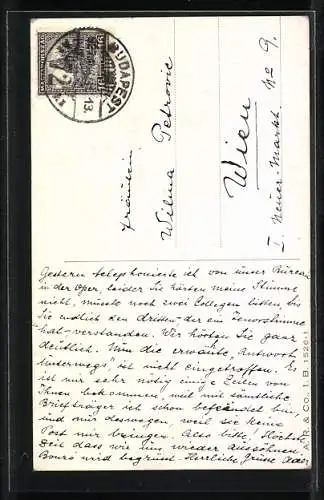 BUDAPEST
13.
72
Fräulein
Wilma Petrovic
Wien
I. Neuer-Markt No 9.
Gestern telephonierte ich von unser Bureau
in der Oper, leider Sie hörten meine Stimme
nicht, musste noch zwei Collegen bitten bis
Sie endlich den dritten, der ein Tenorstimme
hat - verstanden. Wir hörten Sie ganz
deutlich. Nun die erwähnte Antwort
Unterwegs, ist nicht eingetroffen. Es
ist mir sehr nötig einige Zeilen von
Ihnen bekommen, weil mit sämtliche
Briefträger ich schon befeindet bin,
und nur deswegen, weil sie keine
Post mir bringen. Also bitte, Höchste
Zeit dass wir uns wieder aussöhnen.
wird begrüsst. Herzliche Grüsse
AR. & CO. I. B. 1526